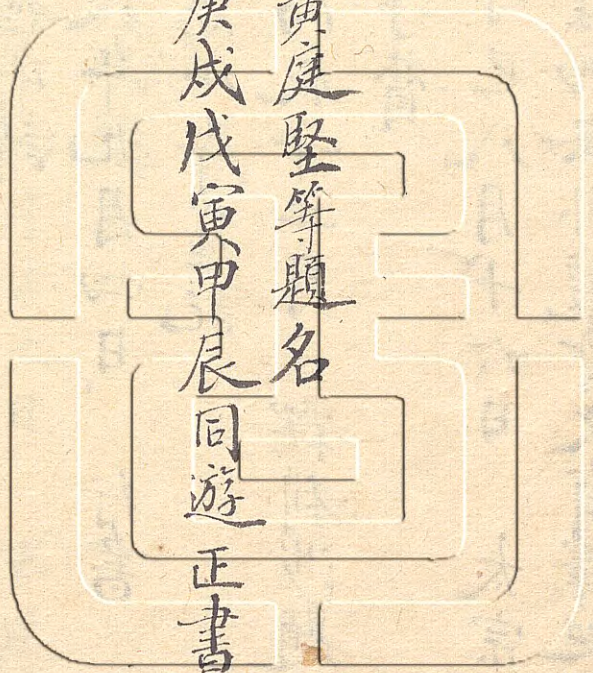 黄庭堅等題名
庚戌戊寅甲辰同遊 正書